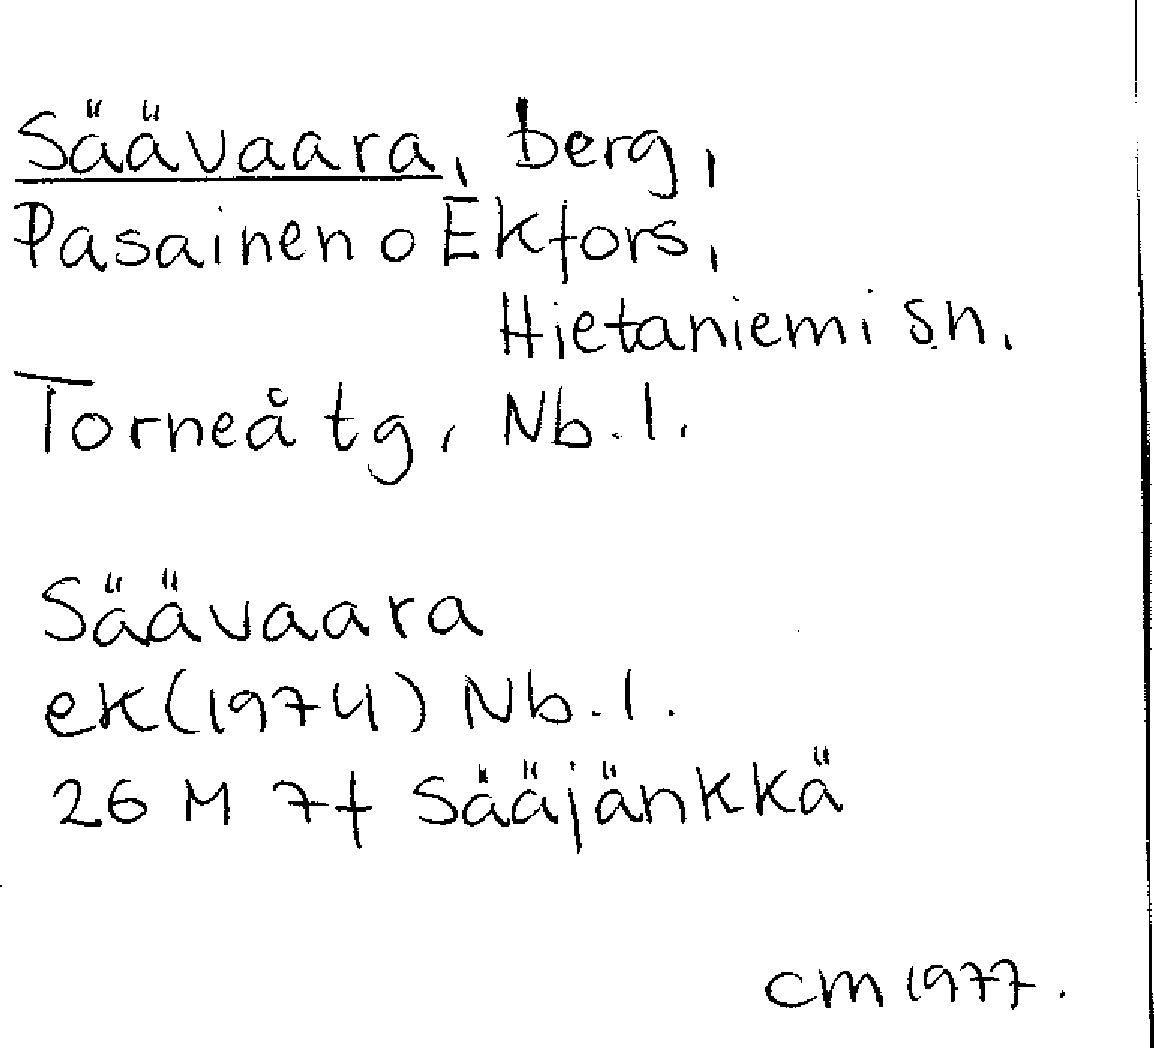 Säävaara, berg,
Pasainen o Ekfors,
Hietaniemi sn.
Torneå tg, Nb. l.
Säävaara
ek(1974) Nb. l.
26 M 7f Sääjänkkä
CM 1977.